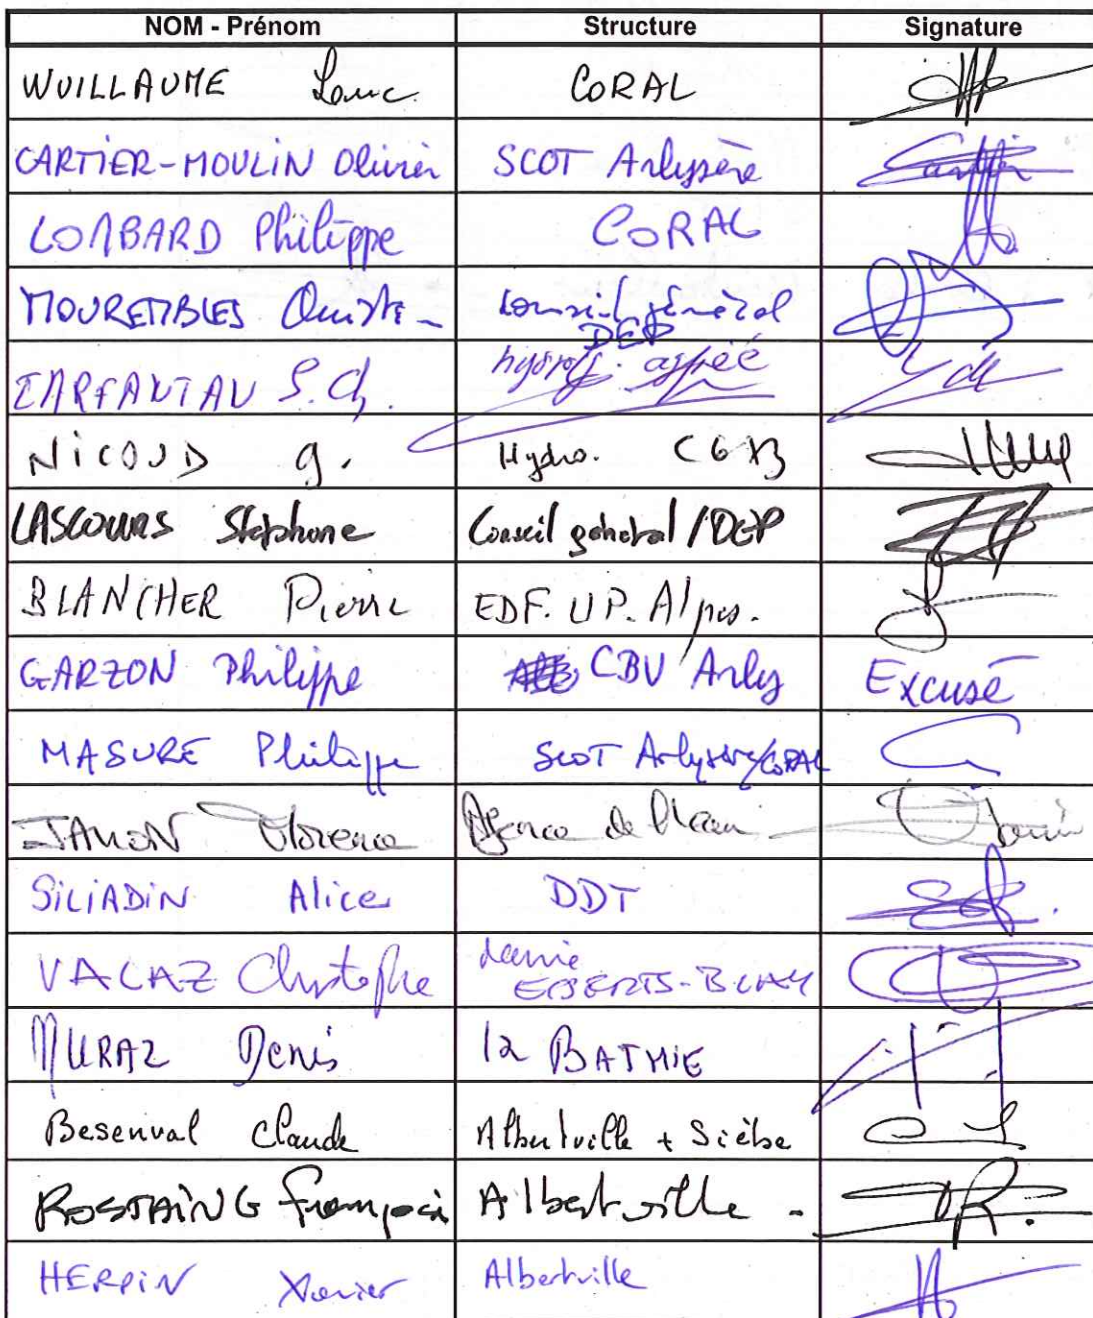 NOM - Prénom Structure Signature
WUILLAUME Louic CORAL
CARTIER-MOULIN Olivier SCOT Arlysère
LOMBARD Philippe CORAL
MOUREMBLES Conseil général
DEP
TARFANTAU S. Ch. hydrog. agréé
NICOUD g. Hydro. CG 73
LASCOURS Stephane Conseil général / DEP
BLANCHER Pierre EDF. UP. Alpes.
GARZON Philippe CBV Arly Excusé
MASURE Philippe SCOT Arlysère/CORAL
JAMON Florence Agence de l'eau
SILIADIN Alice DDT
VALAZ Christophe
MURAZ Denis la BATHIE
Besenval Claude Albertville + Sièbe
ROSTAING François Albertville -
HERPIN Xavier Albertville